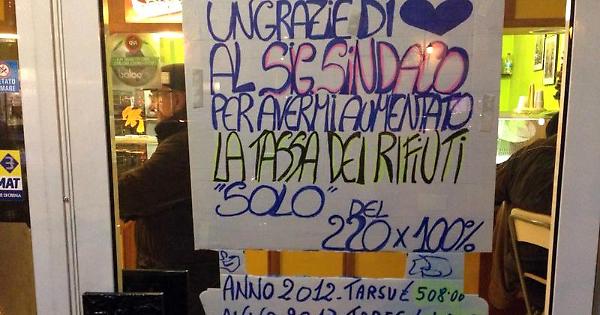 UN GRAZIE DI
AL SIG SINDACO
PER AVERMI AUMENTATO
LA TASSA DEI RIFIUTI
"SOLO" DEL
220 x 100%
ANNO 2012. TARSU € 508.00
MAT